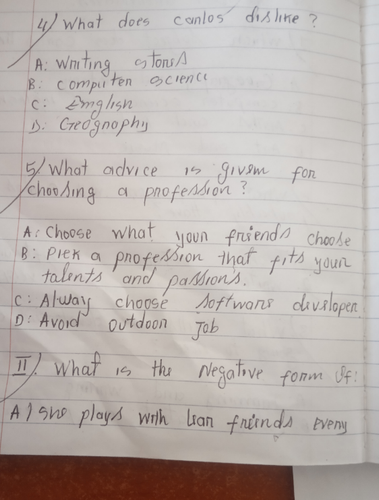 4/ What does canlos dislike ?
A: Writing stonis
B: computen science
C: English
D: Geognaphy
5/ What advice is given fon
choosing a profession ?
A: Choose what youn fniends choose
B: Pick a profession that fits youn
talents and passions.
C: Alway choose softwane divsloper
D: Avoid outdoon Job
II/. What is the Negative form of:
A) She plays with han fniends eveny